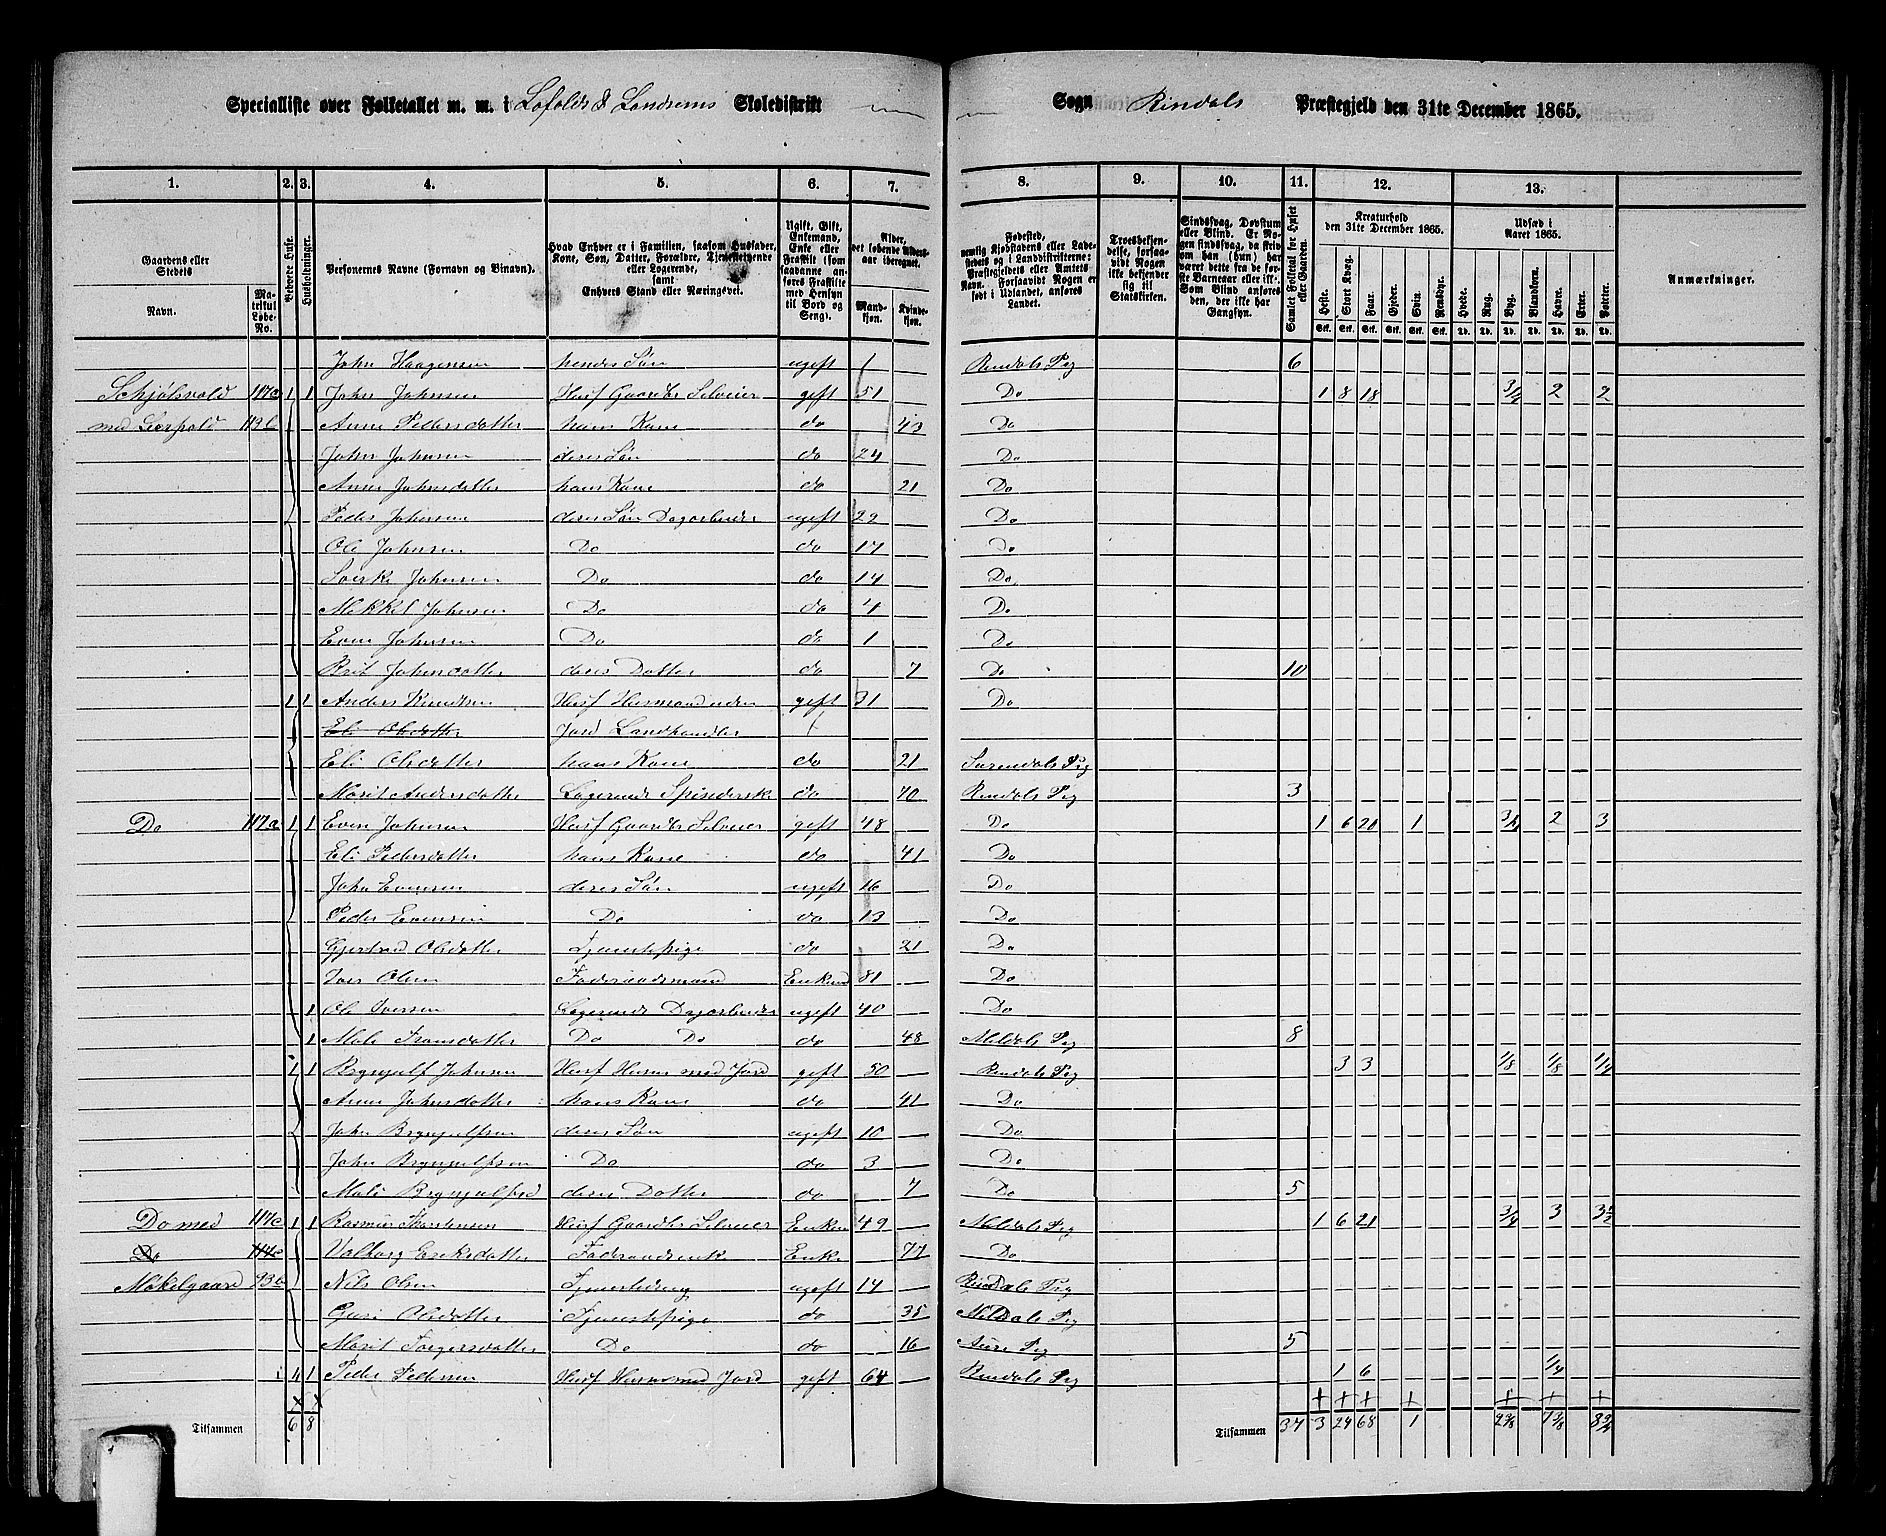 Specialliste over Folketallet m. m. i Lofolds & Landrems Skoledistrikt
Sogn Rindals Præstegjeld den 31te December 1865.
1. 2. 3. 4. 5. 6. 7. 8. 9. 10. 11. 12. 13.
Gaardens eller Stedets
Navn. Matrikul Løbe-No.
Beboede Huse.
Husholdninger.
Personernes Navne (Fornavn og Binavn).
Hvad Enhver er i Familien, saasom Husfader, Kone, Søn, Datter, Forældre, Tjenestetyende eller Logerende, samt Enhvers Stand eller Næringsvei.
Ugift, Gift, Enkemand, Enke eller Fraskilt (som saadanne anføres Fraskilte med Hensyn til Bord og Seng).
Alder, det løbende Alders-aar iberegnet.
Mandkjøn. Kvindekjøn.
Fødested, nemlig Kjøbstadens eller Ladestedets og i Landdistrikterne: Præstegjeldets eller Amtets Navn. Forsaavidt Nogen er født i Udlandet, anføres Landet.
Troesbekjendelse, forsaavidt Nogen ikke bekjender sig til Statskirken.
Sindssvag, Døvstum eller Blind. Er Nogen sindssvag, da skrives om han (hun) har været dette fra de første Barneaar eller ikke. Som Blind anføres den, der ikke har Gangsyn.
Samlet Folketal for Huset eller Gaarden.
Kreaturhold den 31te December 1865.
Heste. Stort Kvæg. Faar. Gjeder. Svin. Rensdyr.
Udsæd i Aaret 1865.
Hvede. Rug. Byg. Blandkorn. Havre. Erter. Poteter.
Anmærkninger.
John Haagensen hendes Søn ugift 1 Rindals Pg 6
Schjølsvold 117a 1 1 John Johnsen Husf Gaardbr Selveier gift 51 Do 1 8 18 3/4 2 2
med 113b Anne Pedersdatter hans Kone do 43 Do
John Johnsen deres Søn do 24 Do
Anne Johnsdatter hans Kone do 21 Do
Peder Johnsen deres Søn Dagarbeider ugift 22 Do
Ole Johnsen Do do 17 Do
Sverke Johnsen Do do 14 Do
Mikkel Johnsen Do do 4 Do
Even Johnsen Do do 1 Do
Brit Johnsdatter deres Datter do 7 Do 10
1 1 Anders Knudsen Husf Husmand uden gift 31 Do
Eli Olsdatter Jord Landhandler
Eli Olsdatter hans Kone do 21 Surendals Pg
Marit Andersdatter Logerende Spinderske do 70 Rindals Pg 3
Do 117a 1 1 Even Johnsen Husf Gaardbr Selveier gift 48 Do 1 6 20 1 3/4 2 3
Eli Pedersdatter hans Kone do 41 Do
John Evensen deres Søn ugift 16 Do
Peder Evensen Do do 13 Do
Gjertrud Olsdatter Tjenestepige do 21 Do
Iver Olsen Føderaadsmand Enkmd 81 Do
1 Ole Iversen Logerende Dagarbeider ugift 40 Do
1 Mali Fransdatter Do Do do 48 Meldals Pg 8
1 1 Brynjulf Johnsen Husf Husm med Jord gift 50 Rindals Pg 3 3 1/8 1/8 1/4
Anne Johnsdatter hans Kone do 41 Do
John Brynjulfsen deres Søn ugift 10 Do
John Brynjulfsen Do do 3 Do
Mali Brynjulfsd deres Datter do 7 Do 5
Do med 117c 1 1 Rasmus Karstensen Husf Gaardbr Selveier Enkm 49 Meldals Pg 1 6 21 3/4 3 3 1/2
Do Valborg Eriksdatter Føderaadsenk Enke 77 Do
Mokelgaard 93c Nils Olsen Tjenestedreng ugift 14 Rindals Pg
Guri Olsdatter Tjenestepige do 35 Meldals Pg
Marit Do do 16 Aure Pg 5
1 1 Peder Pedersen Husf Husm med Jord gift 64 Rindals Pg 1 6 1/4
Tilsammen 6 8 Tilsammen 37 3 24 68 1 2 3/8 7 3/8 8 3/4